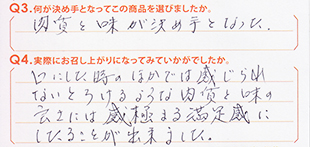 Q3.何が決め手となってこの商品を選びましたか。
肉質と味が決め手となった。
Q4.実際にお召し上がりになってみていかがでしたか。
口にした時のほかでは感じられ
ないとろけるような肉質と味の
良さには感極まる満足感に
したることが出来ました。